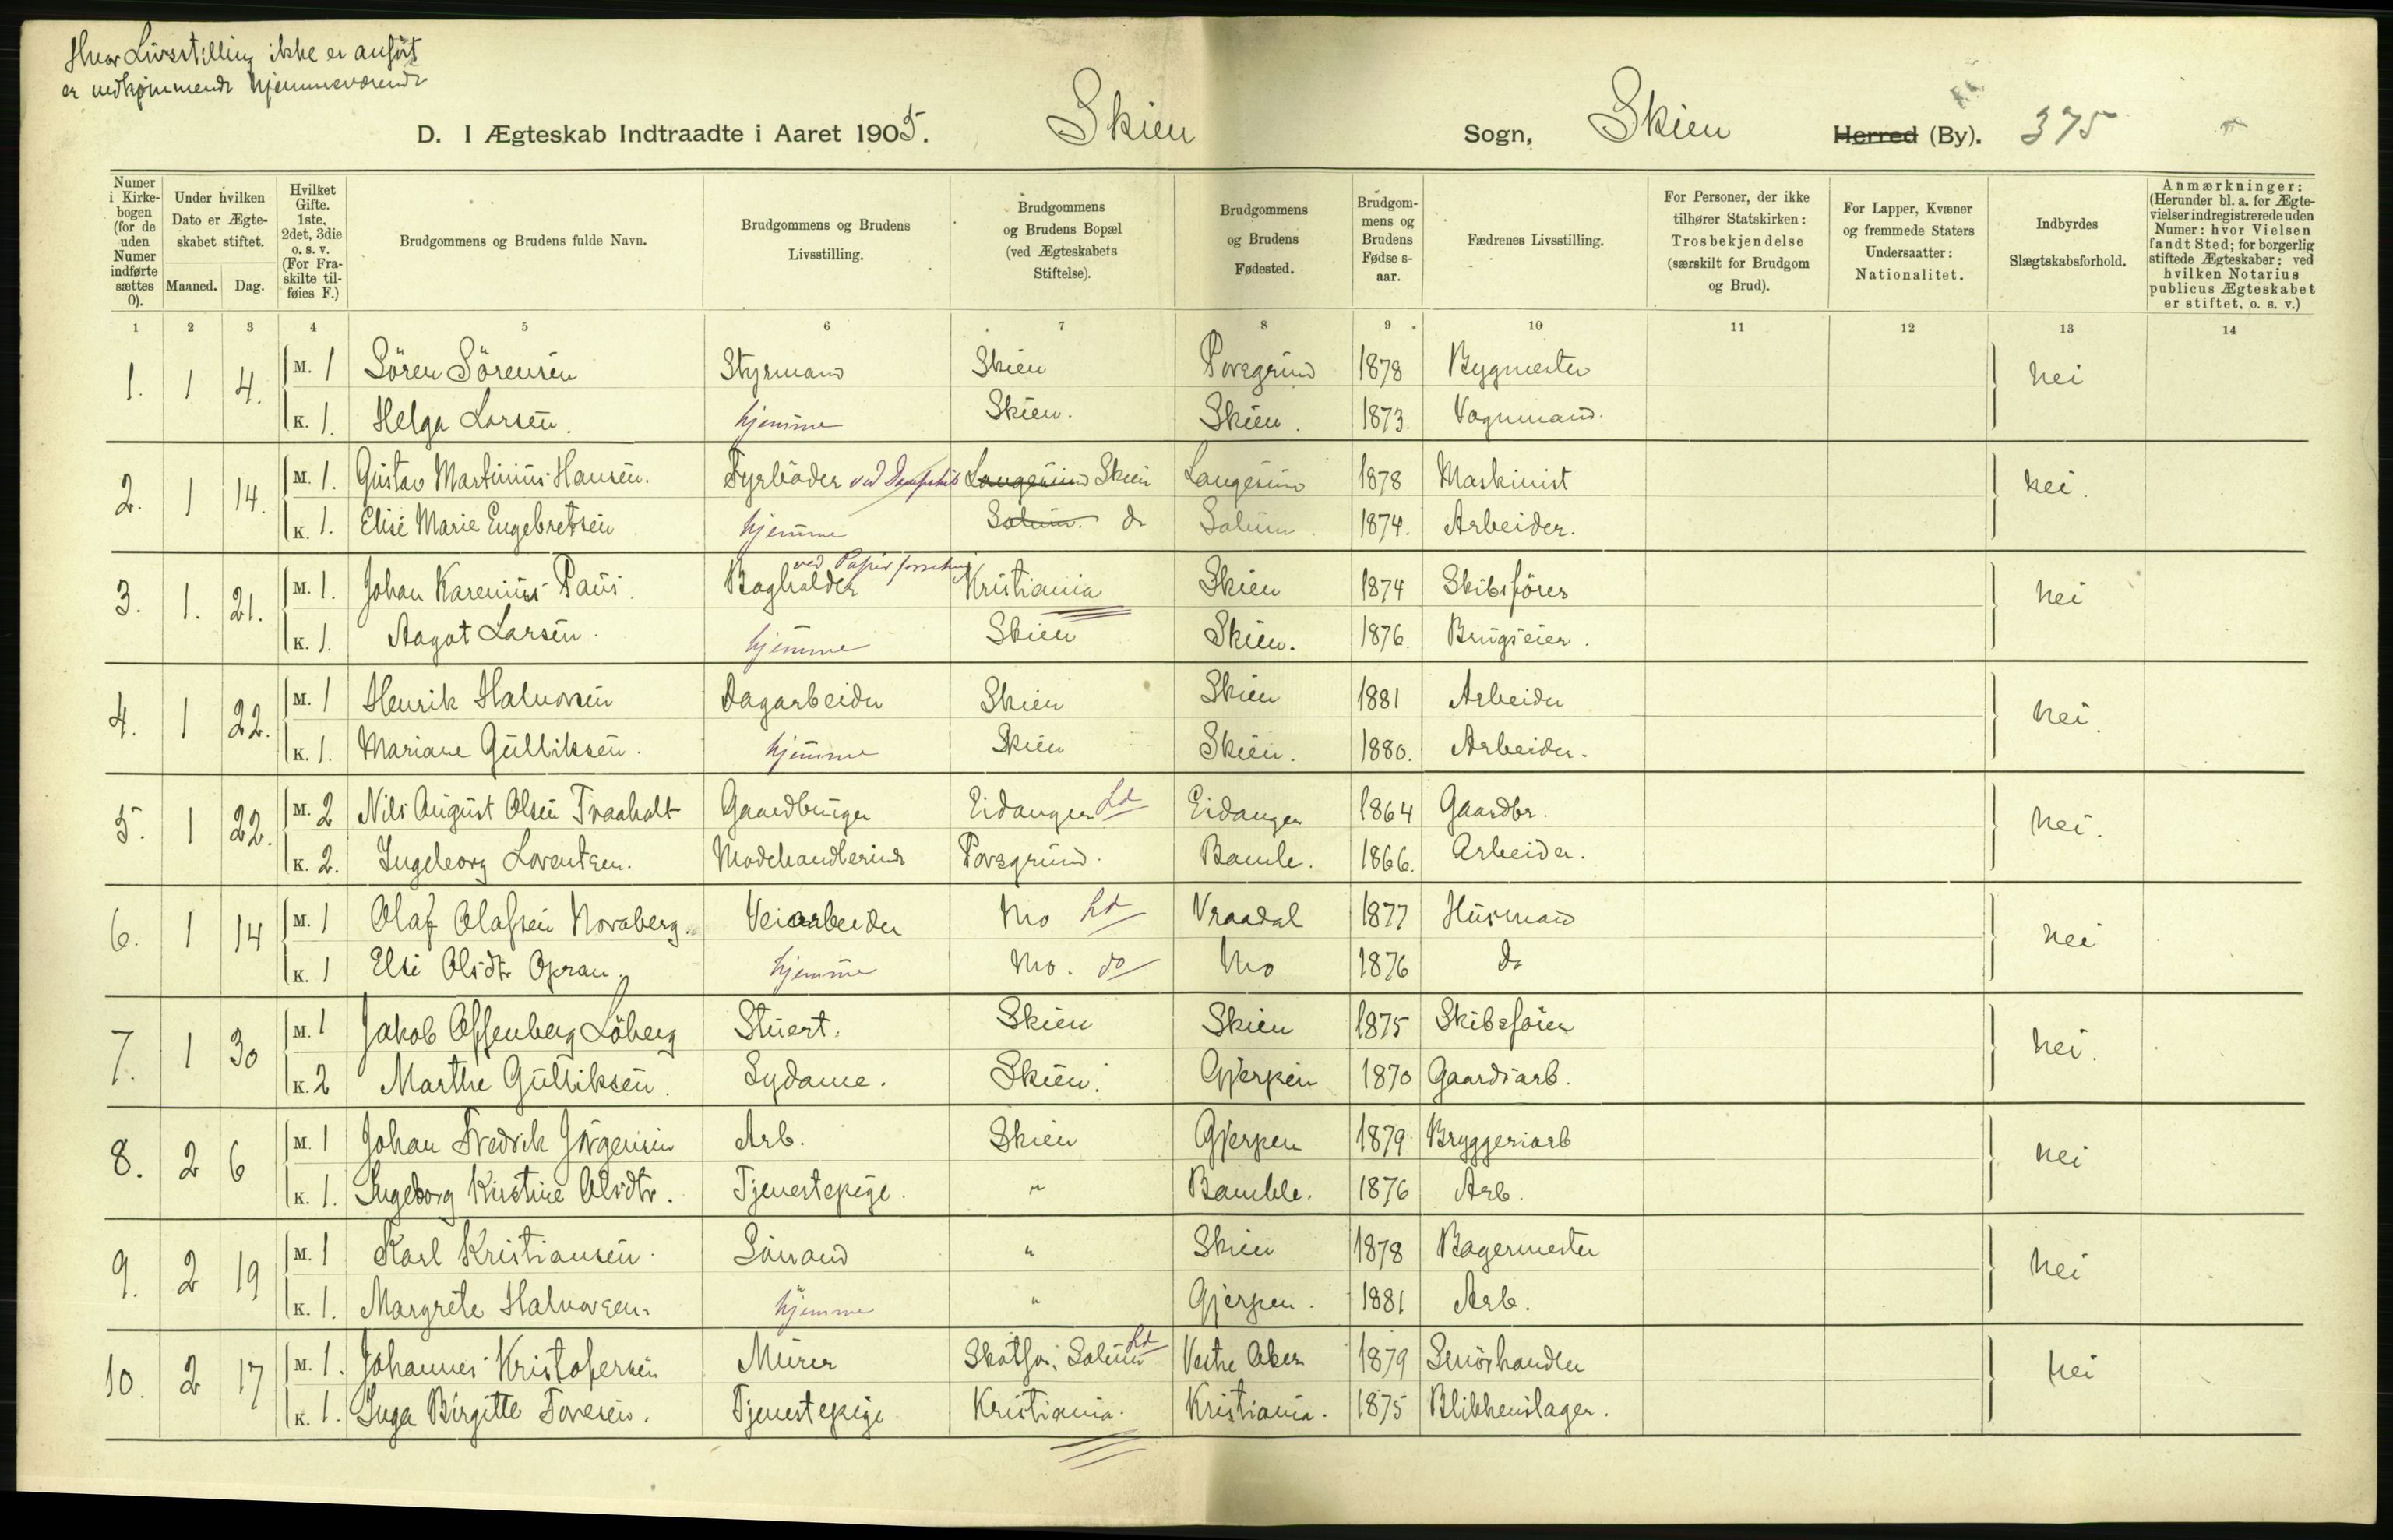 Hvor Livsstilling ikke er anført
er vedkommende hjemmeværende
D. I Ægteskab Indtraadte i Aaret 1905. Skien Sogn, Skien Herred (By). 375
Numer i Kirkebogen (for de uden Numer indførte sættes 0).
Under hvilken Dato er Ægteskabet stiftet.
Maaned. Dag.
Hvilket Gifte. 1ste, 2det, 3die o. s. v. (For Fraskilte tilføies F.)
Brudgommens og Brudens fulde Navn.
Brudgommens og Brudens Livsstilling.
Brudgommens og Brudens Bopæl (ved Ægteskabets Stiftelse).
Brudgommens og Brudens Fødested.
Brudgommens og Brudens Fødselsaar.
Fædrenes Livsstilling.
For Personer, der ikke tilhører Statskirken: Trosbekjendelse (særskilt for Brudgom og Brud).
For Lapper, Kvæner og fremmede Staters Undersaatter: Nationalitet.
Indbyrdes Slægtskabsforhold.
Anmærkninger: (Herunder bl. a. for Ægtevielser indregistrerede uden Numer: hvor Vielsen fandt Sted; for borgerlig stiftede Ægteskaber: ved hvilken Notarius publicus Ægteskabet er stiftet, o. s. v.)
1 2 3 4 5 6 7 8 9 10 11 12 13 14
1. 1 4. M. 1 Sören Sörensen Styrmand Skien Porsgrund 1878 Bygmester nei
K. 1. Helga Larsen. hjemme Skien. Skien. 1873. Vognmand.
2. 1 14. M. 1. Gustav Martinius Hansen. Fyrböder ved Dampskib Langesund Skien Langesund 1878 Maskinist nei.
K. 1. Elise Marie Engebretsen hjemme Solum. do Solum 1874. Arbeider.
3. 1. 21. M. 1. Johan Karenius Paus. Bogholder ved Papirforretning Kristiania Skien 1874 Skibsförer nei
K. 1. Aagot Larsen. hjemme Skien Skien. 1876. Brugseier.
4. 1 22. M. 1 Henrik Halvorsen Dagarbeider Skien Skien 1881 Arbeider nei.
K. 1. Mariane Gulliksen. hjemme Skien Skien. 1880. Arbeider.
5. 1 22. M. 2 Nils August Olsen Traaholt Gaardbruger Eidanger Ld Eidanger 1864 Gaardbr. nei.
K. 2. Ingeborg Lorentzen. Modehandlerinde Porsgrund. Bamle. 1866. Arbeider.
6. 1 14 M. 1 Olaf Olafsen Horaberg. Veiarbeider Mo Ld Vraadal 1877 Husmand nei
K. 1 Elsi Olsdtr hjemme Mo. do Mo 1876 do
7. 1 30 M. 1 Jakob Offenberg Löberg Stuert. Skien Skien 1875 Skibsförer nei.
K. 2 Marthe Gulliksen. Sydame. Skien. Gjerpen 1870 Gaardsarb.
8. 2 6 M. 1 Johan Fredrik Jörgensen Arb. Skien Gjerpen 1879 Bryggeriarb nei
K. 1. Ingeborg Kirstine Olsdtr. Tjenestepige. " Bamble. 1876 Arb.
9. 2 19 M. 1 Karl Kristiansen. Sömand " Skien 1878 Bagermester nei
K. 1. Margrete Halvorsen. hjemme " Gjerpen. 1881 Arb.
10. 2 17 M. 1. Johannes Kristofersen Murer Skotfos, Solum Ld Vestre Aker 1879 Smörhandler nei
K. 1. Inga Birgitte Toresen. Tjenestepige Kristiania. Kristiania. 1875 Blikkenslager.